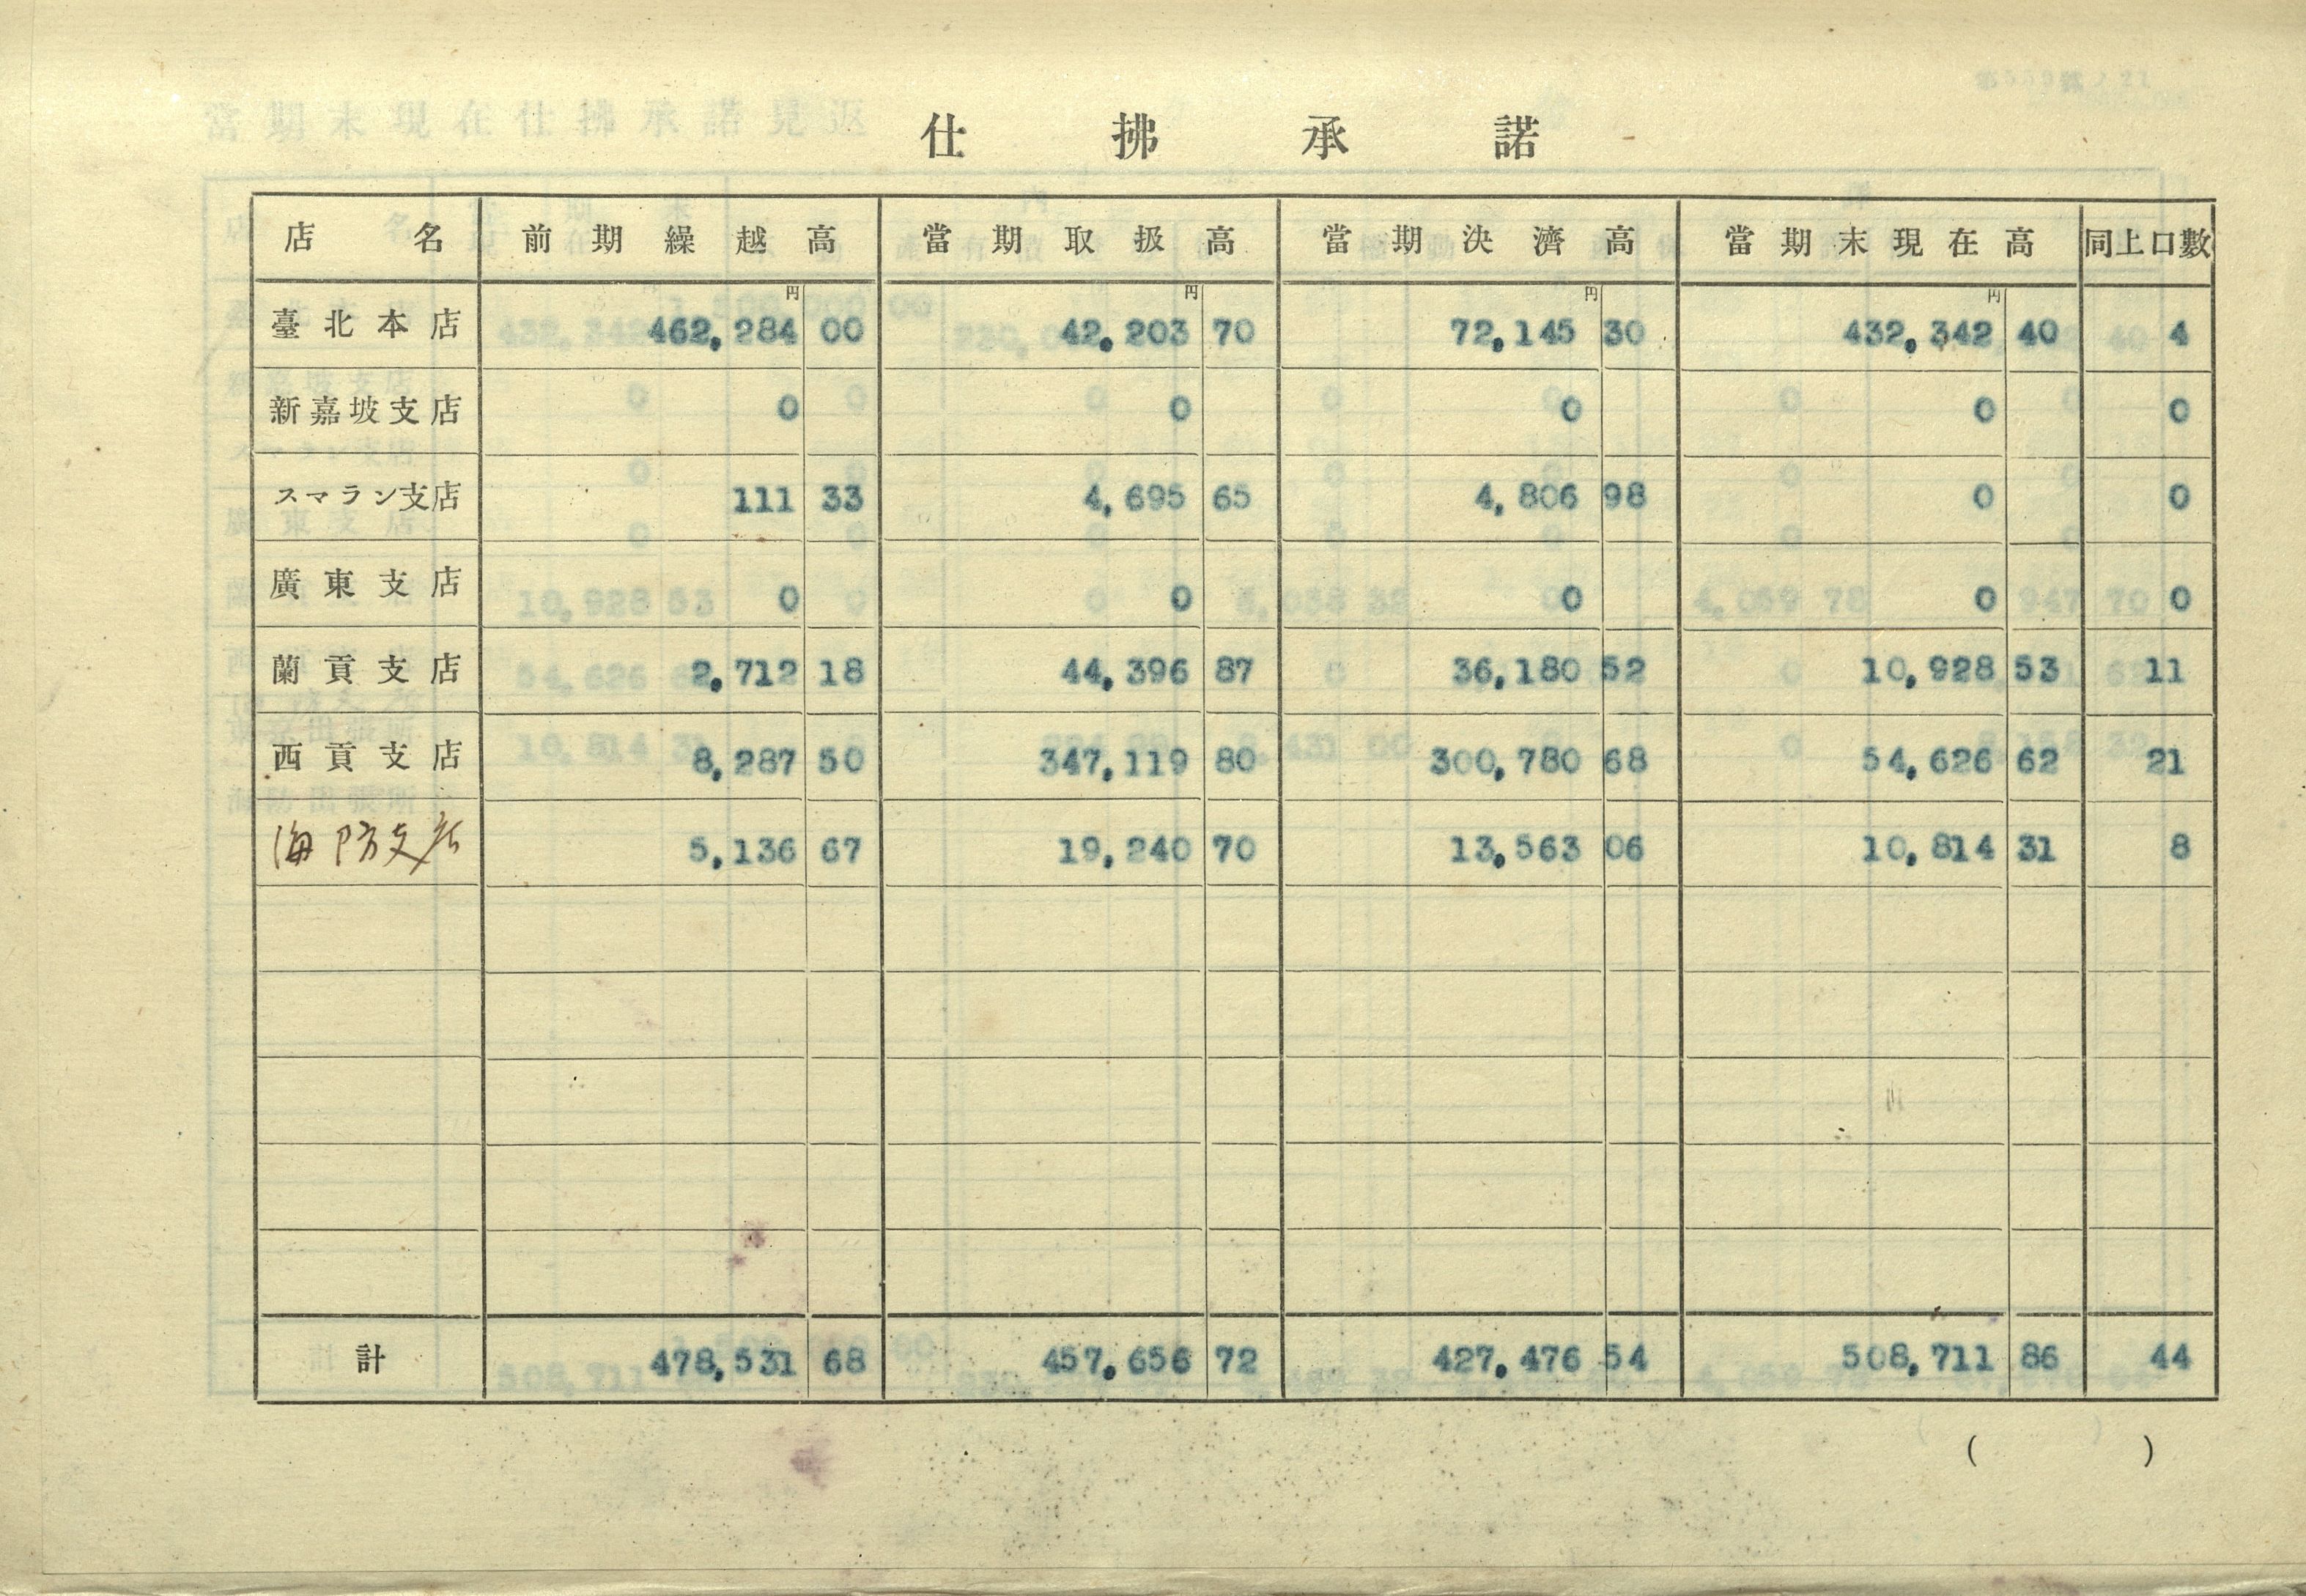 仕拂承諾
店名 前期繰越高 當期取扱高 當期決濟高 當期末現在高 同上口數
円 円 円 円
臺北本店 462,284 00 42,203 70 72,145 30 432,342 40 4
新嘉坡支店 0 0 0 0 0
スマラン支店 111 33 4,695 65 4,806 98 0 0
廣東支店 0 0 0 0 0
蘭貢支店 2,712 18 44,396 87 36,180 52 10,928 53 11
西貢支店 8,287 50 347,119 80 300,780 68 54,626 62 21
海防支店 5,136 67 19,240 70 13,563 06 10,814 31 8
計 478,531 68 457,656 72 427,476 54 508,711 86 44
( )